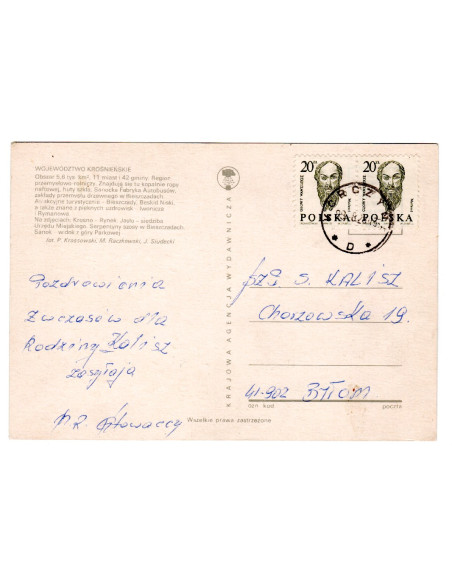 WOJEWÓDZTWO KROŚNIEŃSKIE
Obszar 5,8 tys km², 11 miast i 42 gminy. Region
przemysłowo-rolniczy. Znajdują się tu kopalnie ropy
naftowej, huty szkła, Sanocka Fabryka Autobusów,
zakłady przemysłu drzewnego w Bieszczadach.
Atrakcyjne turystycznie - Bieszczady, Beskid Niski,
a także znane z pięknych uzdrowisk - Iwonicza
i Rymanowa
Na zdjęciach: Krosno - Rynek, Jasło - siedziba
Urzędu Miejskiego, Serpentyny szosy w Bieszczadach,
Sanok - widok z góry Parkowej
fot. P. Krassowski, M. Raczkowski, J. Siudecki
KRAJOWA AGENCJA WYDAWNICZA
20 zł
20 zł
POLSKA
POLSKA
D
Pozdrowienia
Z wczasów dla
Rodziny Kalisz
zasyłają
Głowaccy
S. KALISZ
Chorzowska 19.
41-902 BYTOM
ozn kod
poczta
Wszelkie prawa zastrzeżone